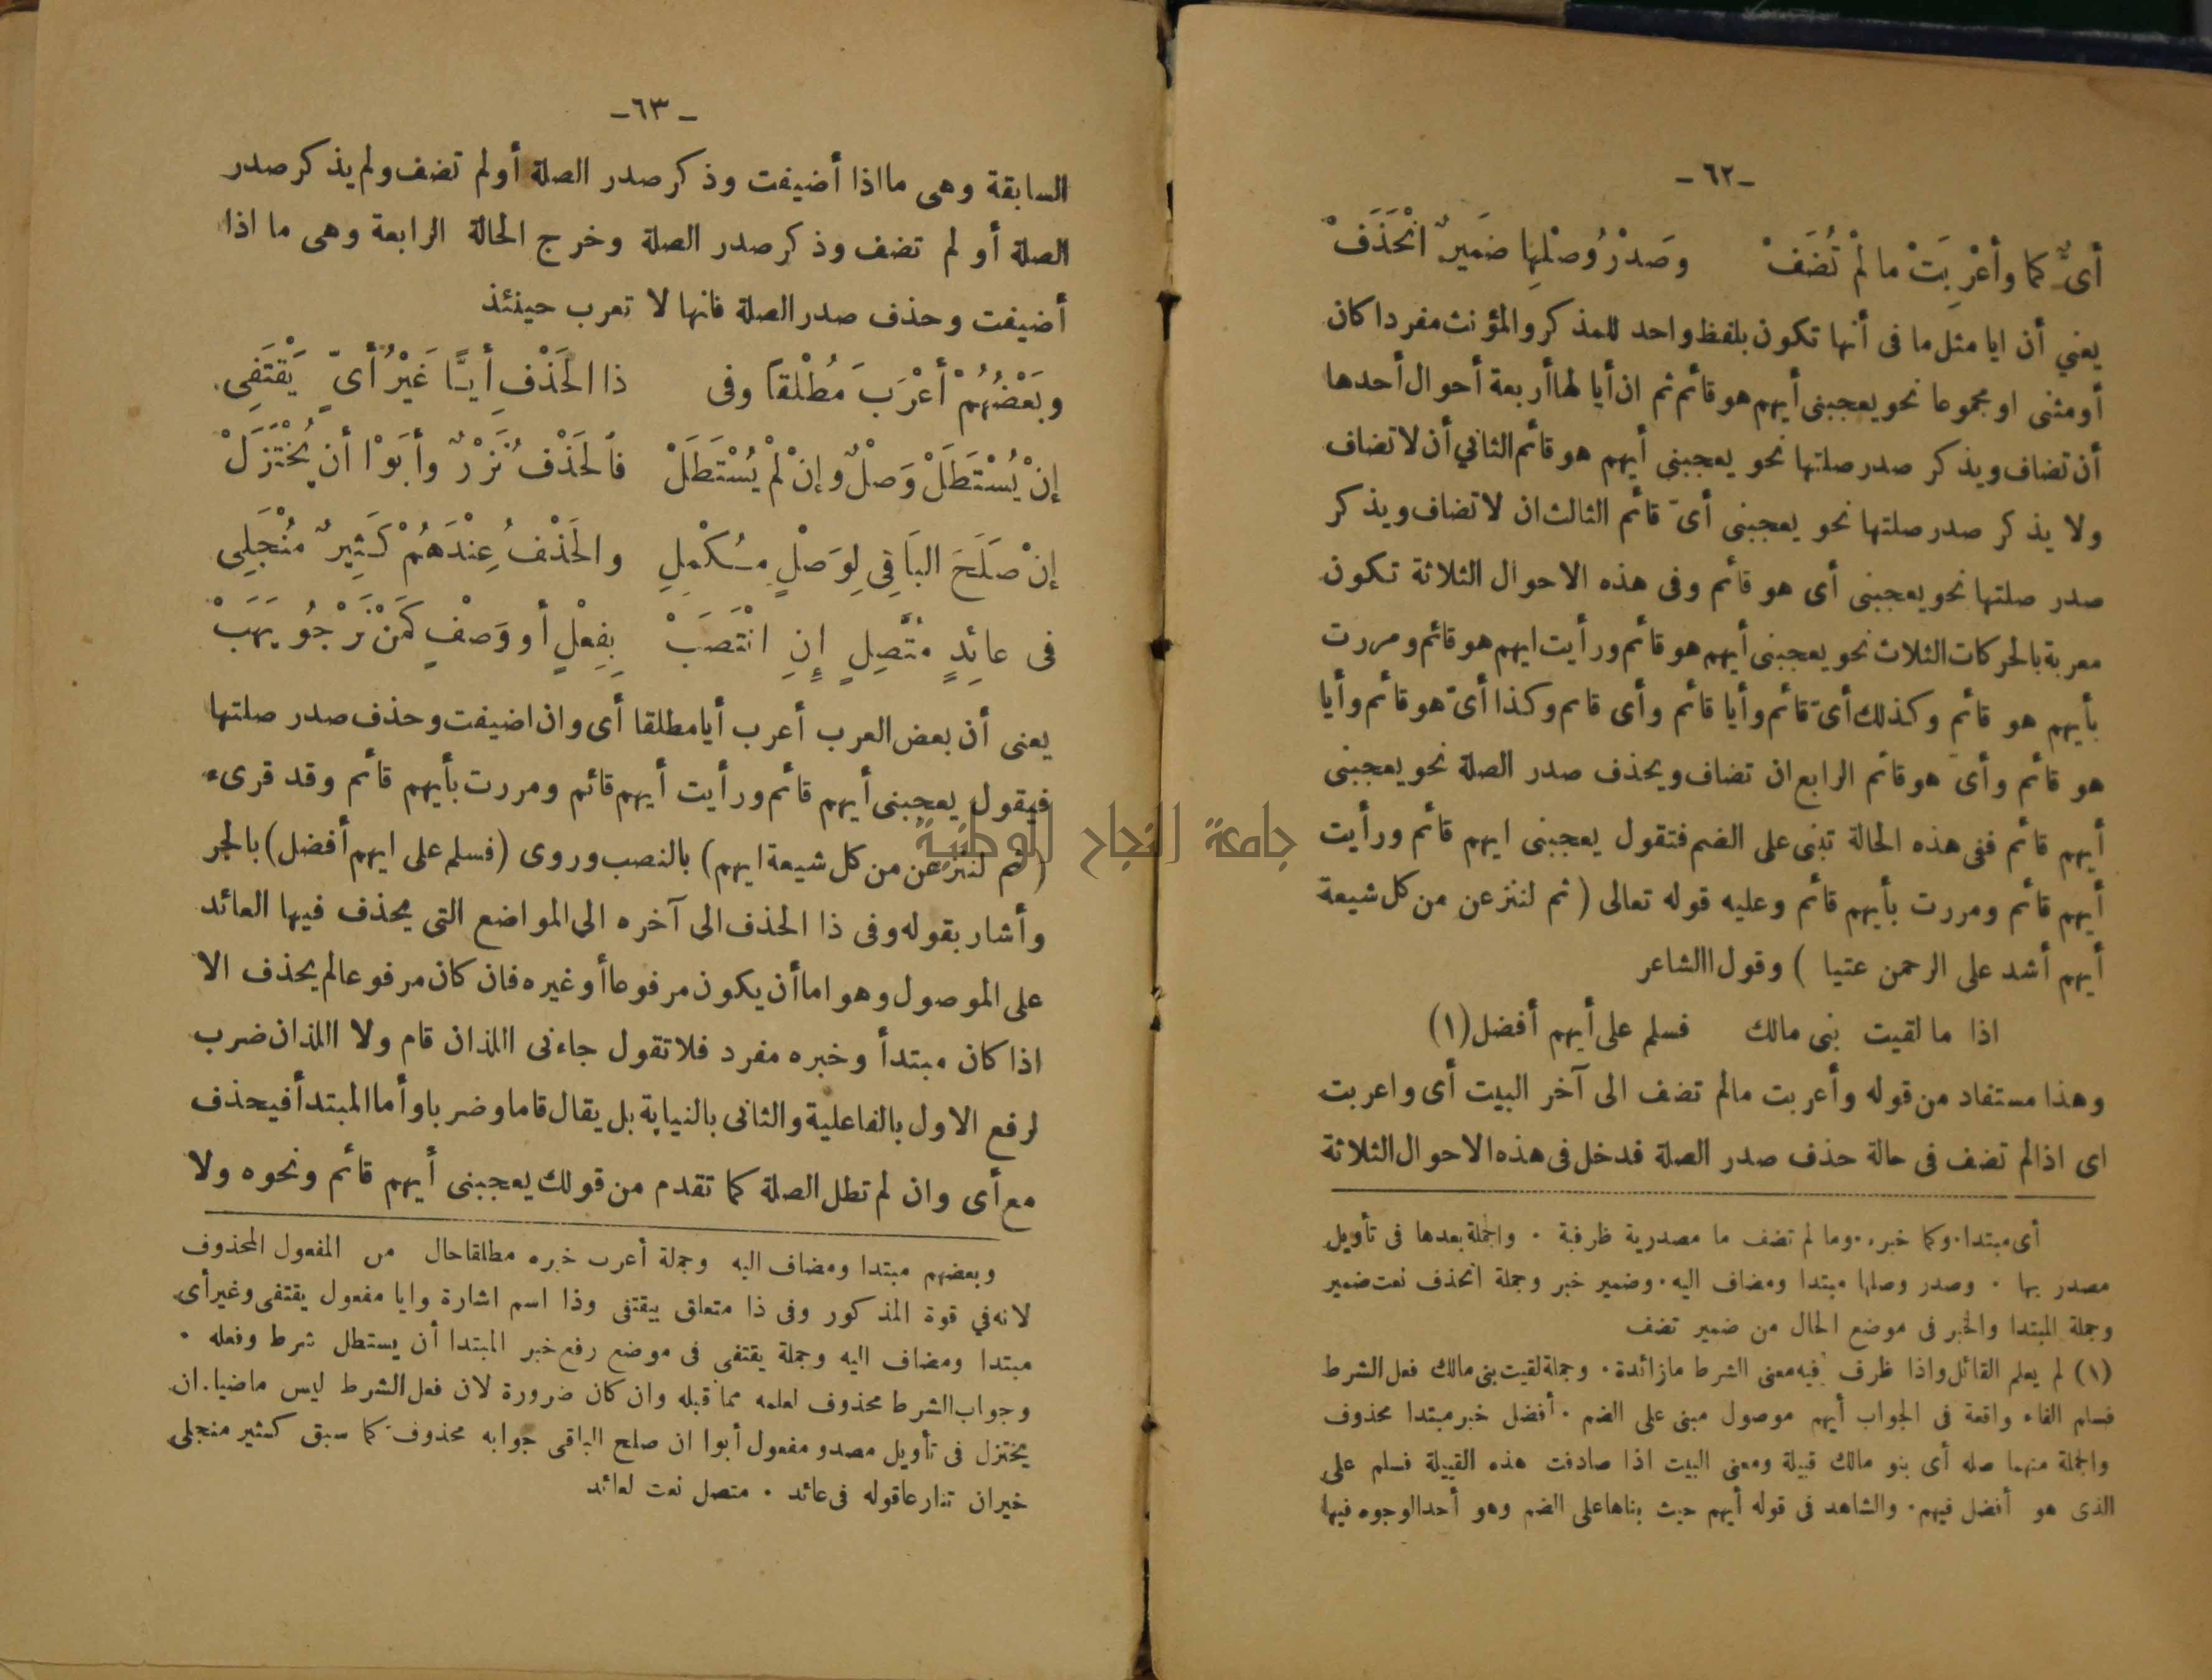 -٦٢-
أىٌّ كما وأُعْرِبَتْ ما لَمْ تُضَفْ وصَدْرُ وصْلِهَا ضَمِيرٌ انْحَذَفْ
يعني أن ايا مثل ما فى أنها تكون بلفظ واحد للمذكر والمؤنث مفردا كان
أو مثنى او مجموعا نحو يعجبنى أيهم هو قائم ثم ان أيا لها أربعة أحوال أحدها
أن تضاف ويذكر صدر صلتها نحو يعجبنى أيهم هو قائم الثاني أن لا تضاف
ولا يذكر صدر صلتها نحو يعجبنى أىّ قائم الثالث ان لا تضاف ويذكر
صدر صلتها نحو يعجبنى أى هو قائم وفى هذه الاحوال الثلاثة تكون
معربة بالحركات الثلاث نحو يعجبنى أيهم هو قائم ورأيت ايهم هو قائم ومررت
بأيهم هو قائم وكذلك أىّ قائم وأيا قائم وأى قائم وكذا أىّ هو قائم وأيا
هو قائم وأىّ هو قائم الرابع ان تضاف ويحذف صدر الصلة نحو يعجبنى
أيهم قائم ففى هذه الحالة تبنى على الضم فتقول يعجبنى ايهم قائم ورأيت
أيهم قائم ومررت بأيهم قائم وعليه قوله تعالى ( ثم لننزعن من كل شيعة
أيهم أشد على الرحمن عتيا ) وقول االشاعر
اذا ما لقيت بنى مالك فسلم على أيهم أفضل (١)
وهذا مستفاد من قوله وأعربت مالم تضف الى آخر البيت أى واعربت
اى اذالم تضف فى حالة حذف صدر الصلة فدخل فى هذه الاحوال الثلاثة
أى مبتدا . وكما خبره . وما لم تضف ما مصدرية ظرفية . والجملة بعدها فى تأويل
مصدر بها . وصدر وصلها مبتدا ومضاف اليه . وضمير خبر وجملة انحذف نعت ضمير
وجملة المبتدا والخبر فى موضع الحال من ضمير تضف
(١) لم يعلم القائل واذا ظرف فيه معنى الشرط ما زائدة . وجملة لقيت بنى مالك فعل الشرط
فسلم الفاء واقعة فى الجواب أيهم موصول مبنى على الضم . أفضل خبر مبتدا محذوف
والجملة منهما صله أى بنو مالك قبيلة ومعنى البيت اذا صادفت هذه القبيلة فسلم على
الذى هو أفضل فيهم . والشاهد فى قوله أيهم حيث بناها على الضم وهو أحد الوجوه فيها
-٦٣-
السابقة وهى ما اذا أضيفت وذكر صدر الصلة أولم تضف ولم يذكر صدر
الصلة أو لم تضف وذكر صدر الصلة وخرج الحالة الرابعة وهى ما اذا
أضيفت وحذف صدر الصلة فانها لا تعرب حينئذ
وبَعْضُهُمْ أعْرَبَ مُطْلَقاً وفى ذا الحَذْفِ أيـًّا غَيْرُ أىٍّ يَقْتَفِى
إنْ يُسْتَطَلْ وَصْلٌ وإنْ لَمْ يُسْتَطَلْ فَالحَذْفُ نَزْرٌ وأبَوْا أنْ يُخْتَزَلْ
إنْ صَلَحَ البَاقِى لِوَصْلٍ مُـكْمِلِ والحَذْفُ عِنْدَهُمْ كَثِيرٌ مُنْجَلِى
فى عائِدٍ مُتَّصِلٍ إِنِ انْتَصَبْ بِفِعْلٍ أو وَصْفٍ كَمَنْ نَرْجُو يَهَبْ
يعنى أن بعض العرب أعرب أيا مطلقا أى وان اضيفت وحذف صدر صلتها
فيقول يعجبنى أيهم قائم ورأيت أيهم قائم ومررت بأيهم قائم وقد قرىء
( ثم لننزعن من كل شيعة ايهم ) بالنصب وروى ( فسلم على ايهم أفضل ) بالجر
وأشار بقوله وفى ذا الحذف الى آخره الى المواضع التى يحذف فيها العائد
على الموصول وهو اما أن يكون مرفوعا أو غيره فان كان مرفوعا لم يحذف الا
اذا كان مبتدأ وخبره مفرد فلا تقول جاءنى االلذان قام ولا االلذان ضرب
لرفع الاول بالفاعلية والثانى بالنيابة بل يقال قاما وضربا وأما المبتدأ فيحذف
مع أى وان لم تطل الصلة كما تقدم من قولك يعجبنى أيهم قائم ونحوه ولا
وبعضهم مبتدا ومضاف اليه وجملة أعرب خبره مطلقا حال من المفعول المحذوف
لانه في قوة المذكور وفى ذا متعلق بيقتفى وذا اسم اشارة وايا مفعول يقتفى وغير أى
مبتدا ومضاف اليه وجملة يقتفى فى موضع رفع خبر المبتدا أن يستطل شرط وفعله .
وجواب الشرط محذوف لعلمه مما قبله وان كان ضرورة لان فعل الشرط ليس ماضيا . ان
يختزل فى تأويل مصدر مفعول أبوا ان صلح الباقى جوابه محذوف كما سبق كثير منجلى
خبران تنازعا قوله فى عائد . متصل نعت لعائد
جامعة النجاح الوطنية